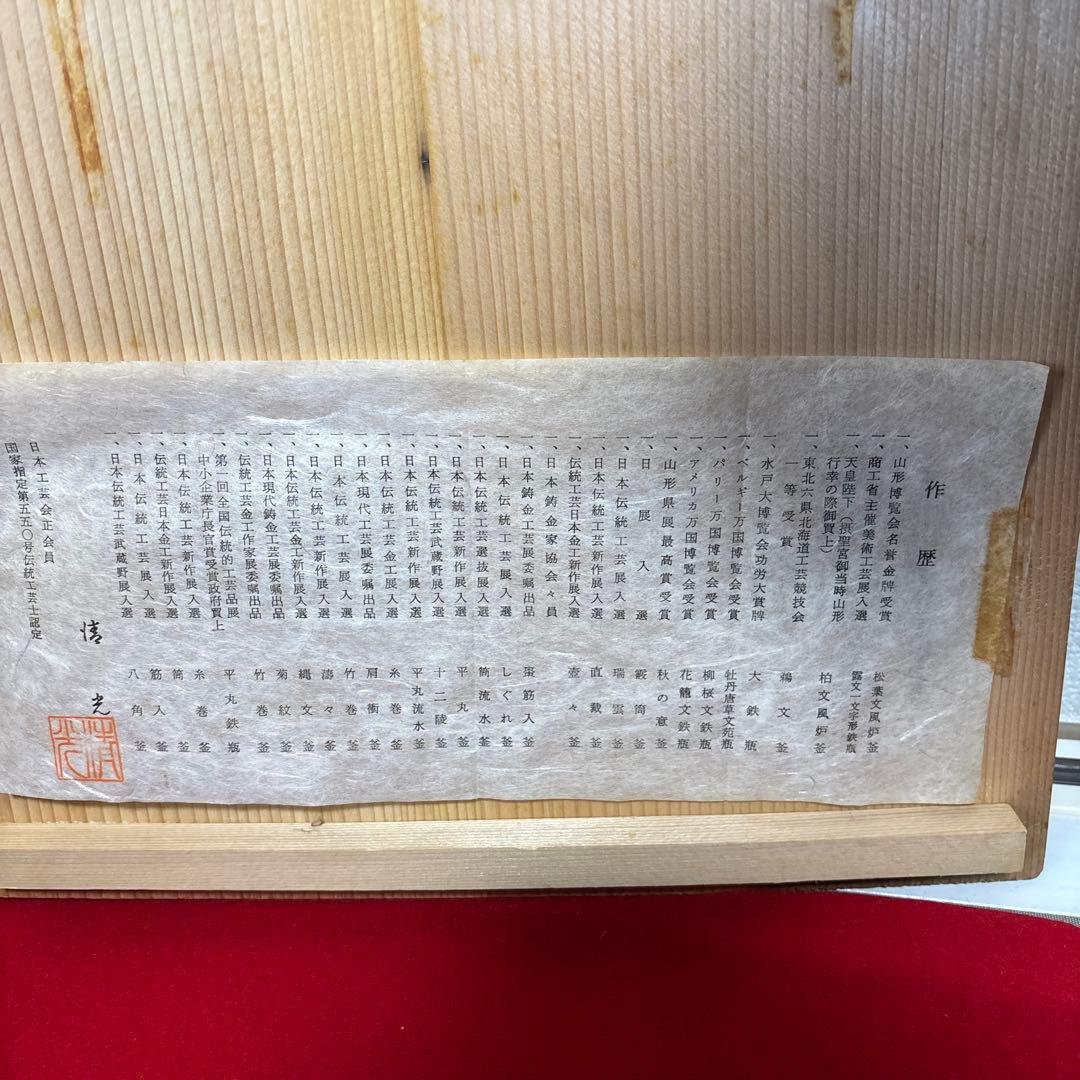 作歴
一、山形博覧会名誉金牌受賞 松葉文風炉釜
一、商工省主催美術工芸展入選 露文一文字形鉄瓶
一、天皇陛下(摂聖宮御当時山形
行幸の際御買上) 柏文風炉釜
一、東北六県北海道工芸競技会
一等受賞 鶏文釜
一、水戸大博覧会功労大賞牌 大鉄瓶
一、ベルギー万国博覧会受賞 牡丹唐草文苑瓶
一、パリー万国博覧会受賞 柳桜文鉄瓶
一、アメリカ万国博覧会受賞 花籠文鉄瓶
一、山形県展最高賞受賞 秋の意釜
一、日展入選 霰筒釜
一、日本伝統工芸展入選 瑞雲釜
一、日本伝統工芸新作展入選 直裁釜
一、伝統工芸日本金工新作展入選 壺々釜
一、日本鋳金家協会々員
一、日本鋳金工芸展委嘱出品 棗筋入釜
一、日本伝統工芸展入選 しぐれ釜
一、日本伝統工芸選抜展入選 筒流水釜
一、日本伝統工芸新作展入選 平丸釜
一、日本伝統工芸武蔵野展入選 十二陵釜
一、日本伝統工芸新作展入選 平丸流水釜
一、日本伝統工芸金工展入選 糸巻釜
一、日本現代工芸展委嘱出品 肩衝釜
一、日本伝統工芸展入選 竹巻釜
一、日本伝統工芸新作展入選 濤々釜
一、日本伝統工芸金工新作展入選 縄文釜
一、日本現代鋳金工芸展委嘱出品 菊紋釜
一、伝統工芸金工作家展委嘱出品 竹巻釜
一、第一回全国伝統的工芸品展
中小企業庁長官賞受賞政府買上 平丸鉄瓶
一、日本伝統工芸新作展入選 糸巻釜
一、伝統工芸日本金工新作展入選 筒釜
一、日本伝統工芸展入選 筋入釜
一、日本伝統工芸武蔵野展入選 八角釜
清光
清光
日本工芸会正会員
国家指定第五五〇号伝統工芸士認定